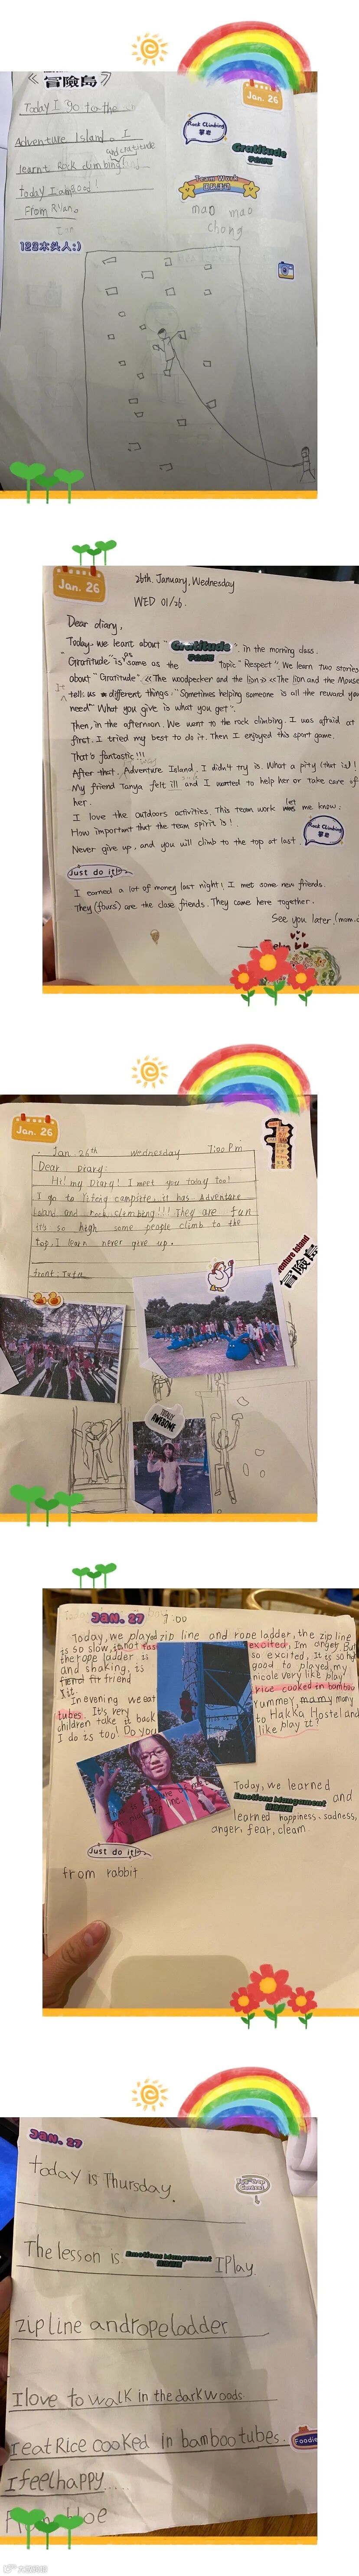 《冒險島》
Jan. 26
Today I go to the
Rock Climbing
攀岩
Adventure Island. I
and Gratitude
learnt Rock climbing
Gratitude
today I am good!
Team Work
From Ryan.
mao mao
chong
123木头人:)
Jan. 26
26th. January, Wednesday
WED 01/26.
Dear diary,
Today. we learnt about "Gratitude". in the morning class.
"Grartitude" is as same as the Topic "Respect". We learn two stories
about "Gratitude" <<The woodpecker and the lion>> <<The lion and the Mouse
It tell us different things. "Sometimes helping someone is all the reward you
need" What you give is what you get".
Then, in the afternoon. We went to the rock climbing. I was afraid at
first. I tried my best to do it. Then I enjoyed this sport game.
That's fantastic!!!
After that, Adventure Island, I didn't try is. What a pity (that is)!
My friend Tanya felt ill and I wanted to help her or take care of
her.
I love the outdoors activities. This team work let me know;
How important that the team spirit is!
Never give up, and you will climb to the top at last.
Rock Climbing
攀岩
Just do it!
I earned a lot of money last night! I met some new friends.
They (fours) are the close friends. They came here together.
See you later.
Jan. 26
Jan 26th wednesday 7:00 Pm
Dear Diary:
Hi! my Diary! I meet you today too!
I go to Yifeng campsite, it has Adventure
Island and rock climbing!!! They are fun
it's so high some people climb to the
top, I learn never give up.
Adventure Island
冒險島
TOTALLY
AWESOME
JAN. 27 7:00
Today, we played zip line and rope ladder, the zip line
is so slow, is not fast excited, Im anger But
the rope ladder is so excited, It is so high
and shaking, is good to played my
friend nicole very like play
it.
In evening we eat rice cooked in bamboo
tubes. It's very yummey, many
children take it back to Hakka Hostel and
I do is too! Do you like play it?
Today, we learned
Emotions Mangement and
learned happiness, sadness,
anger, fear, cleam.
Just do it!
from rabbit
JAN. 27
today is Thursday.
The lesson is Emotions Mangement I Play
zip line and rope ladder
I love to walk in the dark woods
I eat Rice cooked in bamboo tubes.
Foodie
I feel happy......